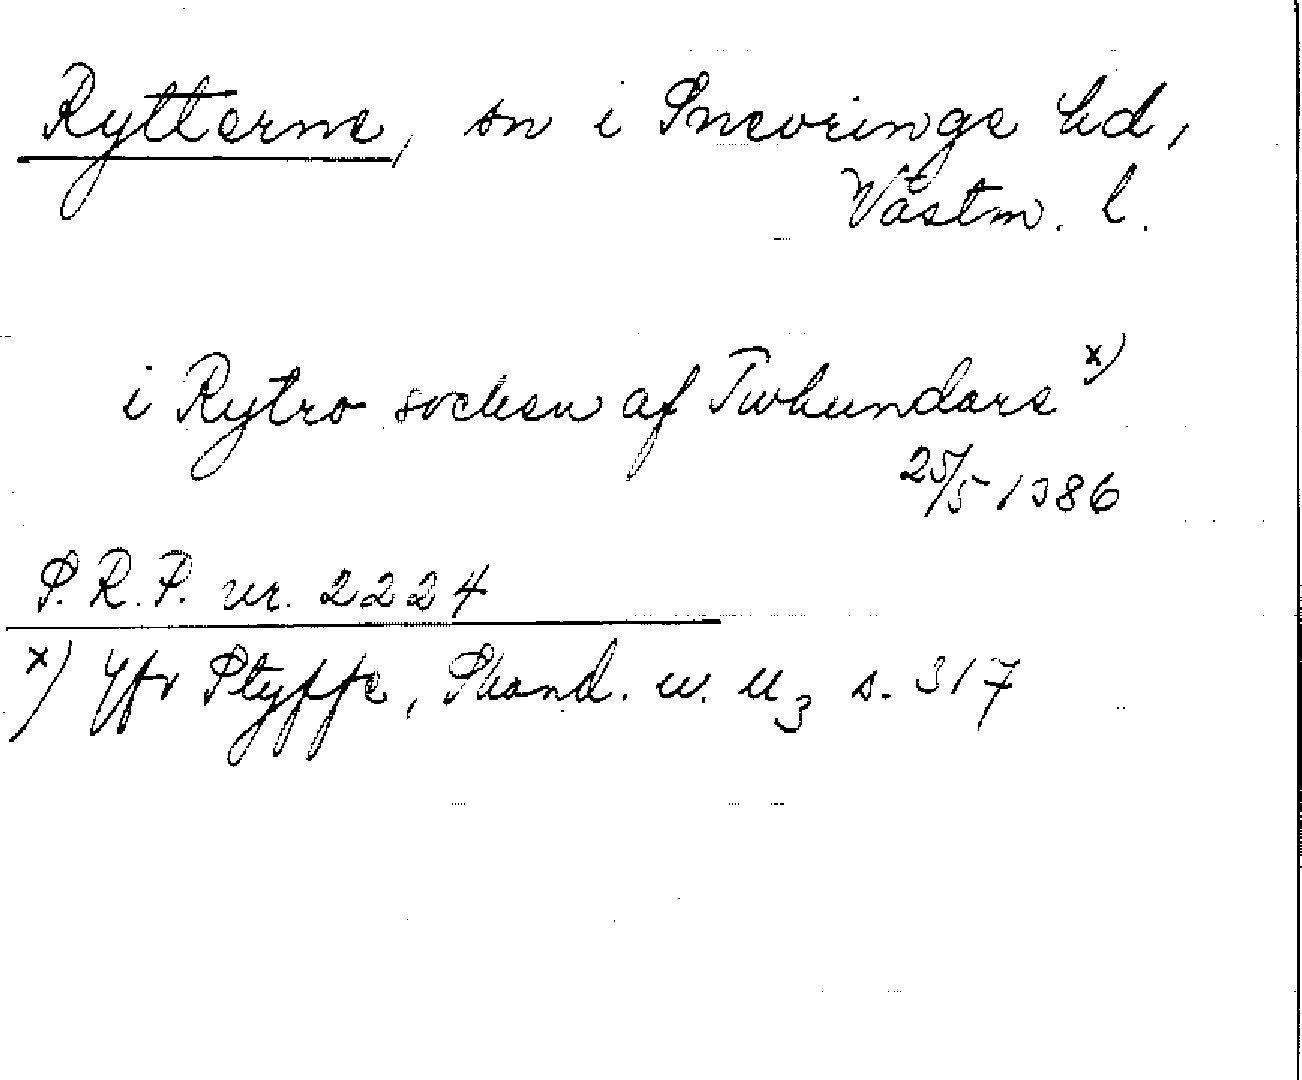 Rytterne, sn i Snevringe hd,
Västm. l.
i Rytro socken af Twhundare x)
25/5 1386
S.R.P. nr. 2224
x) Jfr Styffe, Skand. u. U3 s. 317